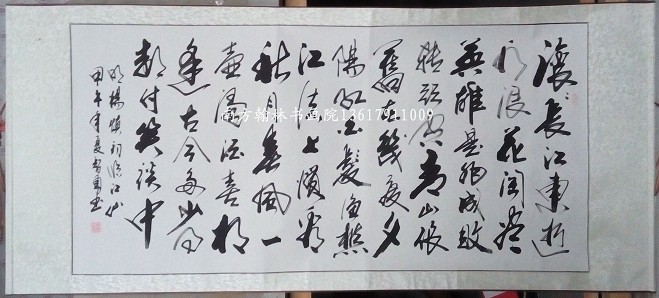 滚滚长江东逝
水浪花淘尽
英雄是非成败
转头空青山依
旧在几度夕
阳红白发渔樵
江渚上惯看
秋月春风一
壶浊酒喜相
逢古今多少事
都付笑谈中
明杨慎词临江仙
甲午年夏
南方翰林书画院13617911009